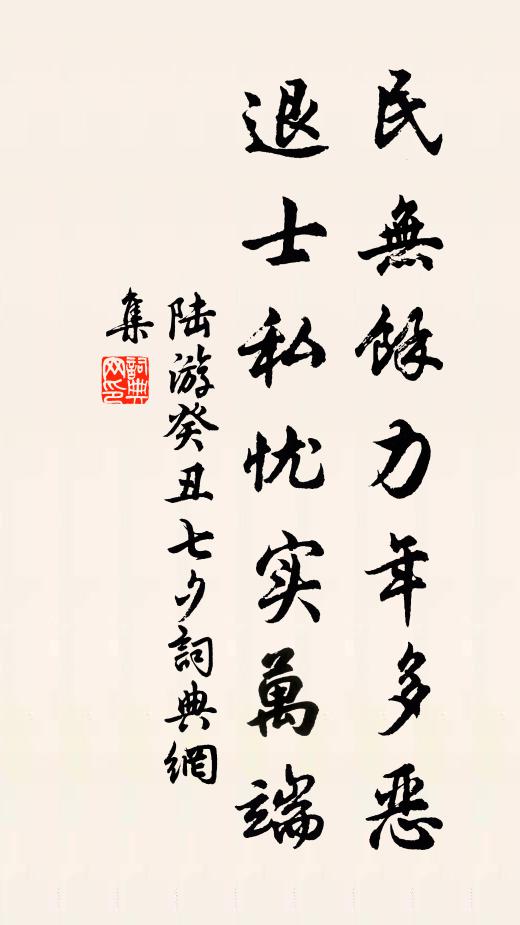 民無餘力年多恶
退士私忧实萬端
陆游癸丑七夕詞典網
集
詞典网印